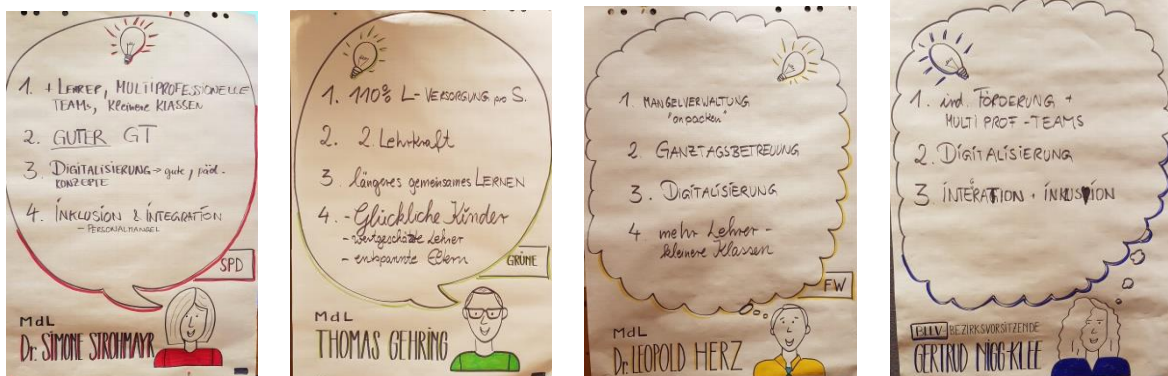 1. + LEHRER, MULTIPROFESSIONELLE
TEAMS, kleinere KLASSEN
2. GUTER GT
3. DIGITALISIERUNG → gute, päd.
KONZEPTE
4. INKLUSION & INTEGRATION
- PERSONALMANGEL
SPD
MdL
Dr. SIMONE STROHMAYR
1. 110% L-VERSORGUNG pro S.
2. 2. Lehrkraft
3. längeres gemeinsames LERNEN
4. - Glückliche Kinder
- wertgeschätzte Lehrer
- entspannte Eltern
GRÜNE
MdL
THOMAS GEHRING
1. MANGELVERWALTUNG
"anpacken"
2. GANZTAGSBETREUUNG
3. DIGITALISIERUNG
4. mehr Lehrer -
kleinere Klassen
FW
MdL
Dr. LEOPOLD HERZ
1. ind. FÖRDERUNG +
MULTIPROF-TEAMS
2. DIGITALISIERUNG
3. INTEGRATION + INKLUSION
BLLV BEZIRKSVORSITZENDE
GERTRUD NIGG-KLEE